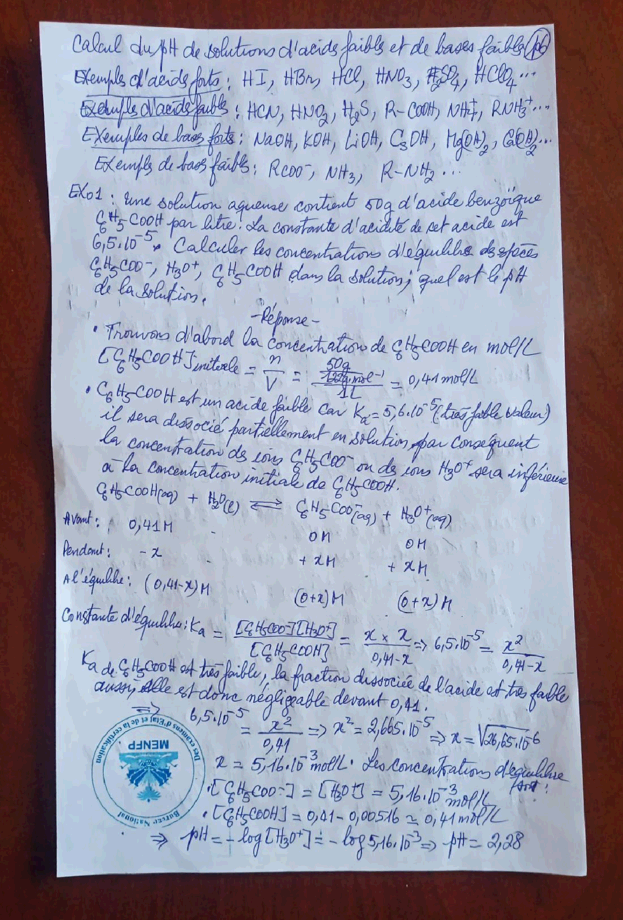 Calcul du pH de solutions d'acids faibles et de bases faibles p6
Exemples d'acids forts : HI, HBr, HCl, HNO₃, H₂SO₄, HClO₄...
Exemples d'acids faibles : HCN, HNO₂, H₂S, R-COOH, NH₄⁺, RNH₃⁺...
Exemples de bases forts : NaOH, KOH, LiOH, CsOH, Mg(OH)₂, Ca(OH)₂...
Exemples de bases faibles : RCOO⁻, NH₃, R-NH₂ ...
EX01 : Une solution aqueuse contient 50g d'acide benzoïque
C₆H₅COOH par litre. La constante d'acidité de cet acide est
6,5.10⁻⁵. Calculer les concentrations d'équilibre des espèces
C₆H₅COO⁻, H₃O⁺, C₆H₅COOH dans la solution; quel est le pH
de la solution.
-Réponse-
• Trouvons d'abord la concentration de C₆H₅COOH en mol/L
[C₆H₅COOH]initiale = n/V = (50g/122g.mol⁻¹)/1L = 0,41 mol/L
• C₆H₅COOH est un acide faible car Ka = 5,6.10⁻⁵ (très faible valeur)
il sera dissocié partiellement en solution, par conséquent
la concentration de ions C₆H₅COO⁻ ou de ions H₃O⁺ sera inférieure
à la concentration initiale de C₆H₅COOH.
C₆H₅COOH(aq) + H₂O(l) ⇌ C₆H₅COO⁻(aq) + H₃O⁺(aq)
Avant : 0,41M 0M 0M
Pendant : -x +xM +xM
A l'équilibre : (0,41-x)M (0+x)M (0+x)M
Constante d'équilibre : Ka = [C₆H₅COO⁻][H₃O⁺]/[C₆H₅COOH] = x × x/0,41-x ⇒ 6,5.10⁻⁵ = x²/0,41-x
Ka de C₆H₅COOH est très faible, la fraction dissociée de l'acide est très faible
aussi, elle est donc négligeable devant 0,41.
⇒ 6,5.10⁻⁵ = x²/0,41 ⇒ x² = 2,665.10⁻⁵ ⇒ x = √26,65.10⁻⁶
x = 5,16.10⁻³ mol/L. Les concentrations d'équilibre
sont :
• [C₆H₅COO⁻] = [H₃O⁺] = 5,16.10⁻³ mol/L
• [C₆H₅COOH] = 0,41 - 0,00516 ≃ 0,41 mol/L
⇒ pH = -log[H₃O⁺] = -log 5,16.10⁻³ ⇒ pH = 2,28
Bureau National
Des examens d'Etat et de la certification
MENFP